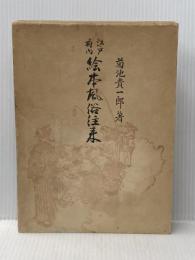 菊池貴一郎著
江戸府内
絵本風俗往来